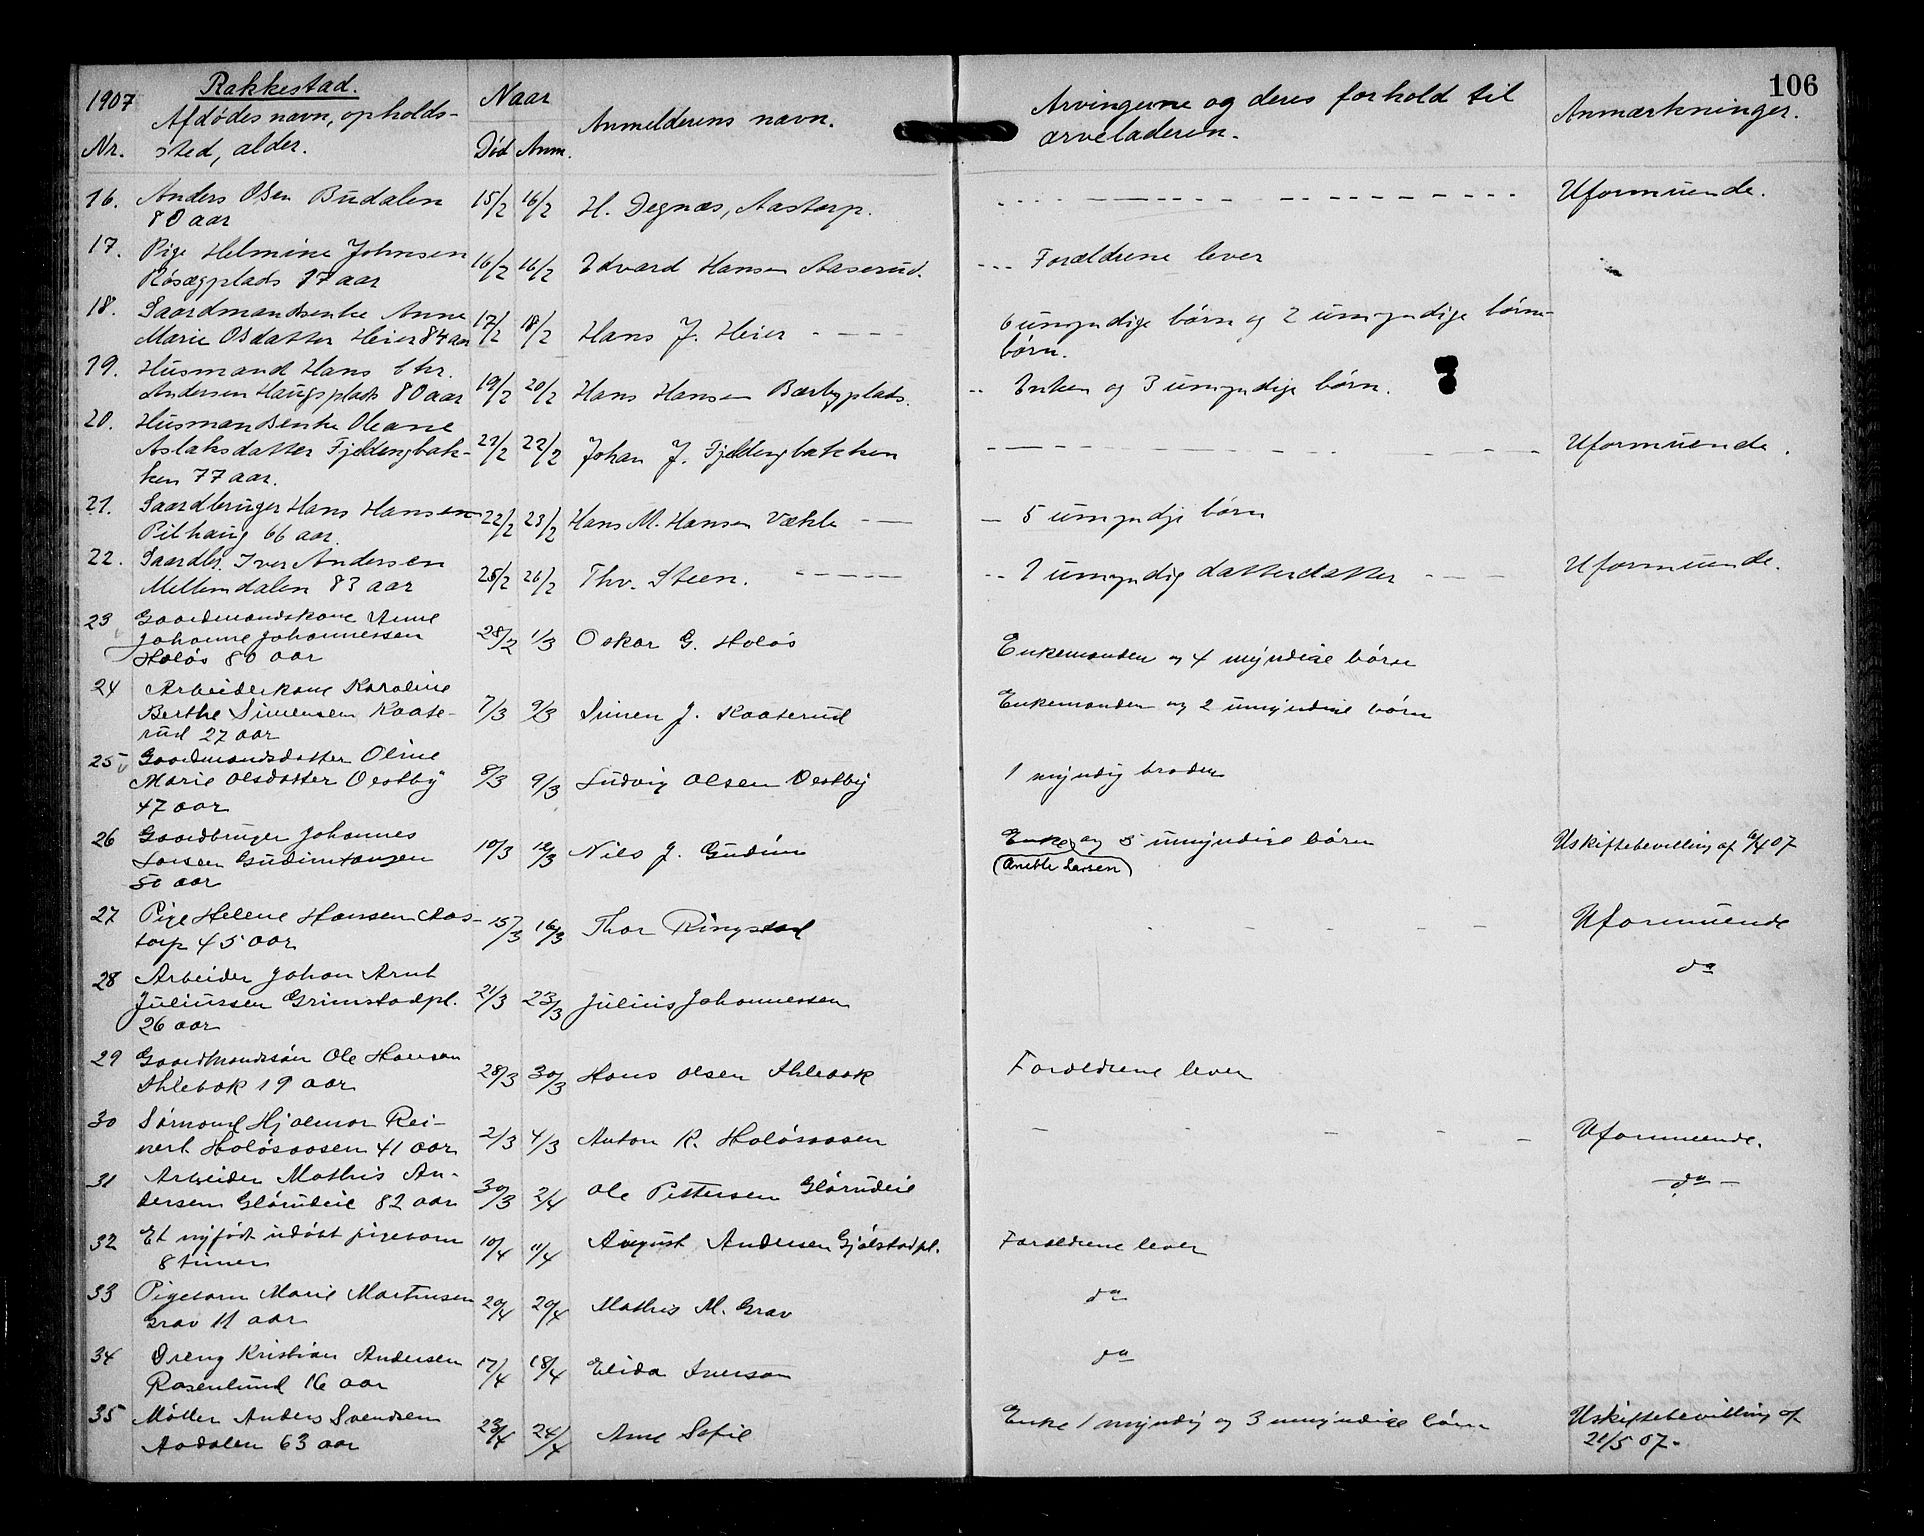 106
1907 Rakkestad. Naar
Nr. Afdødes navn, opholds- Død Anm. Anmelderens navn. Arvingerne og deres forhold til Anmærkninger.
sted, alder. arveladeren.
16. Anders Olsen Budalen 15/2 16/2 H. Degnæs, Aastorp. Uformuende.
80 aar
17. Pige Helmine Johnsen
Røsægplads 17 aar 16/2 16/2 Edvard Hansen Aaserud. Forældrene lever
18. Gaardmandsenke Anne
Marie Olsdatter Heier 84 aar 17/2 18/2 Hans J. Heier 6 umyndige børn og 2 umyndige børne-
børn.
19. Husmand Hans Chr.
Andersen Haugsplads 80 aar 19/2 20/2 Hans Hansen Bærbyplads. Enken og 3 umyndige børn.
20. Husmandsenke Oleane
Aslaksdatter Fjeldengbak- 21/2 22/2 Johan J. Fjeldengbakken Uformuende.
ken 77 aar.
21. Gaardbruger Hans Hansen
Pilhaug 66 aar. 22/2 23/2 Hans M. Hansen Vækle 5 umyndige børn
22. Gaardbr. Iver Andersen
Mellemdalen 83 aar 25/2 26/2 Thv. Steen. 1 umyndig datterdatter Uformuende.
23 Gaardmandskone Anne
Johanne Johannessen 28/2 1/3 Oskar G. Holøs Enkemanden og 4 myndige børn
Holøs 80 aar
24 Arbeiderkone Karoline
Berthe Simensen Kaase- 7/3 9/3 Simen J. Kaaserud Enkemanden og 2 umyndige børn
rud 27 aar
25 Gaardmandsdatter Oline
Marie Olsdatter Østby 8/3 9/3 Ludvig Olsen Østby 1 myndig broder
47 aar
26 Gaardbruger Johannes
Larsen Gudimtangen 10/3 12/3 Nils J. Gudim Enke og 5 umyndige børn Uskiftebevilling af 6/4 07
50 aar (Anette Larsen)
27 Pige Helene Hansen Aas-
torp 45 aar 15/3 16/3 Thor Ringstad Uformuende
28 Arbeider Johan Arnt do
Juliussen Grimstadpl. 21/3 23/3 Julius Johannessen
26 aar
29 Gaardmandssøn Ole Hansen
Sklebak 19 aar 28/3 30/3 Hans Olsen Skleaak Forældrene lever
30 Sømand Hjalmar Rei-
nert Holøsaasen 41 aar 2/3 4/3 Anton R. Holøsaasen Uformuende.
31 Arbeider Mathis An-
dersen Glørudeie 82 aar 30/3 2/4 Ole Pettersen Glørudeie - do -
32 Et nyfødt udøbt pigebarn
8 timer 10/4 11/4 August Andersen Gjølstadpl. Forældrene lever
33 Pigebarn Marie Martinsen
Grav 11 aar 20/4 20/4 Mathis M. Grav do
34 Dreng Kristian Andersen
Rosenlund 16 aar 17/4 18/4 Elida Iversen do
35 Møller Anders Svendsen
Aadalen 63 aar 23/4 24/4 Ane Sofie Enke 1 myndig og 3 umyndige børn Uskiftebevilling af
21/5 07.